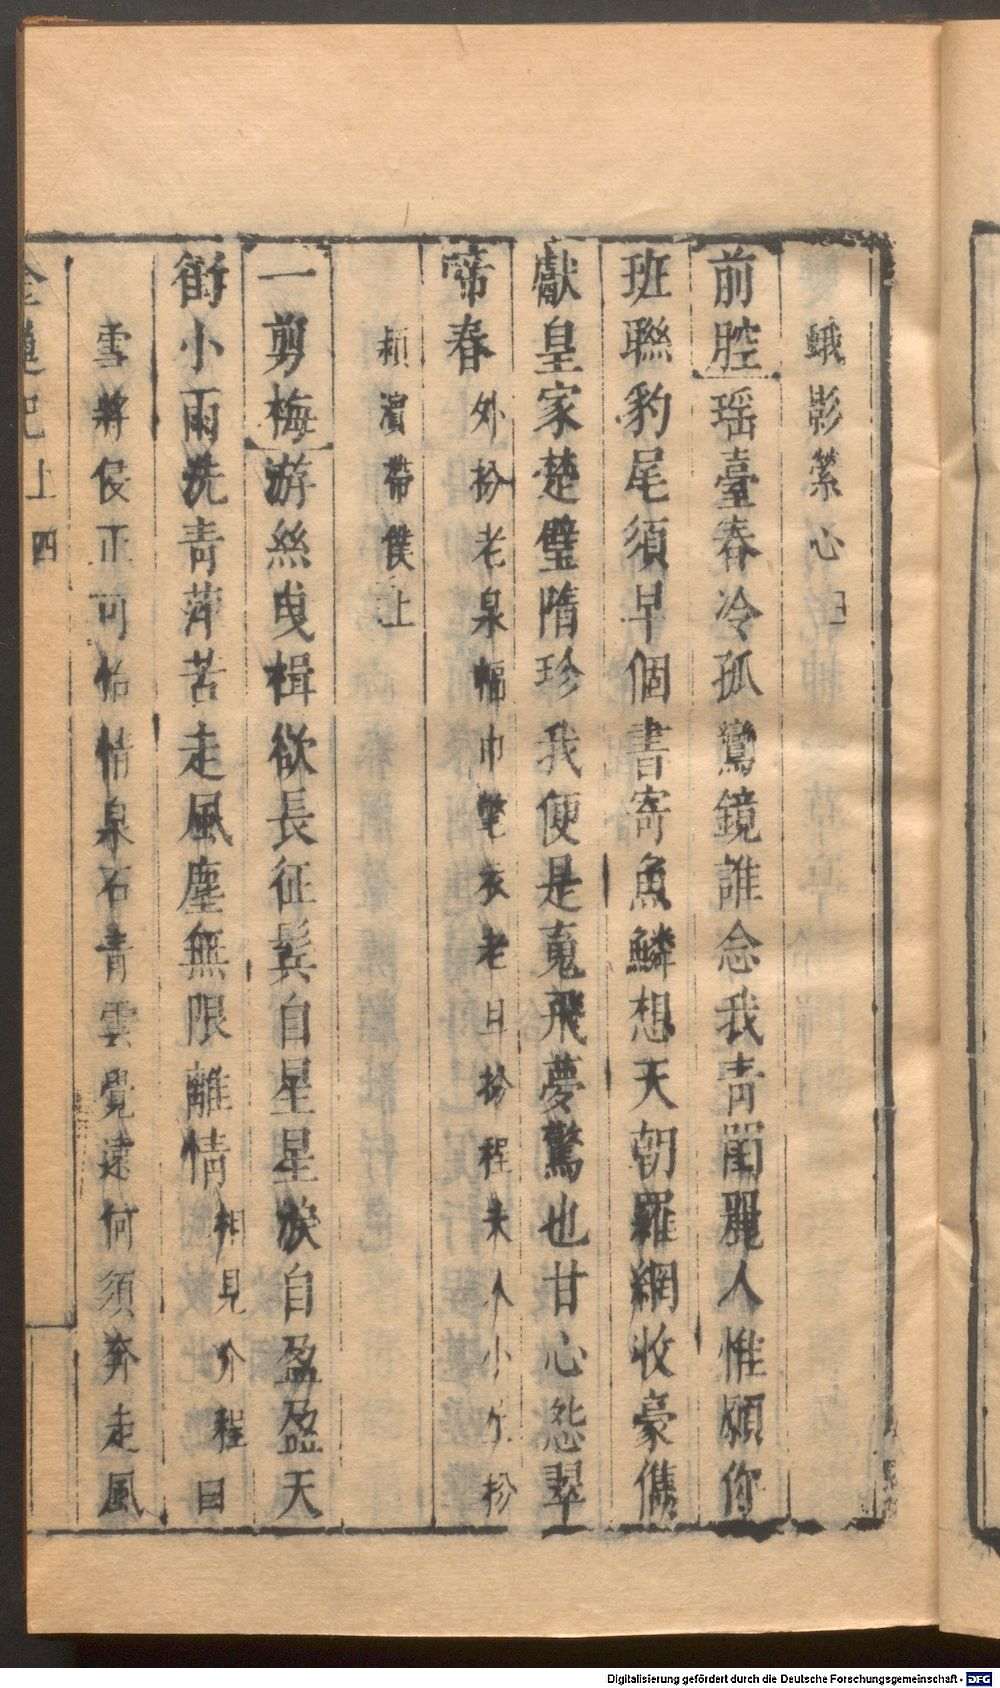 蛾影縈心
前腔 瑶臺春冷孤鸞鏡誰念我青閨麗人惟願你
班聯豹尾須早個書寄魚鱗想天朝羅網收豪儁
獻皇家楚璧隋珍我便是䰟飛夢驚也甘心怨翠
啼春 外扮老泉幅巾氅衣老旦扮程夫人小生扮
頴濵帶僕上
一剪梅 游絲曳楫欲長征鬂自星星族自盈盈天
街小雨洗青萍苦走風塵無限離情 相見介程曰
雪將侵正可怡情泉石青雲覺遠何須奔走風
上 四
Digitalisierung gefördert durch die Deutsche Forschungsgemeinschaft - DFG